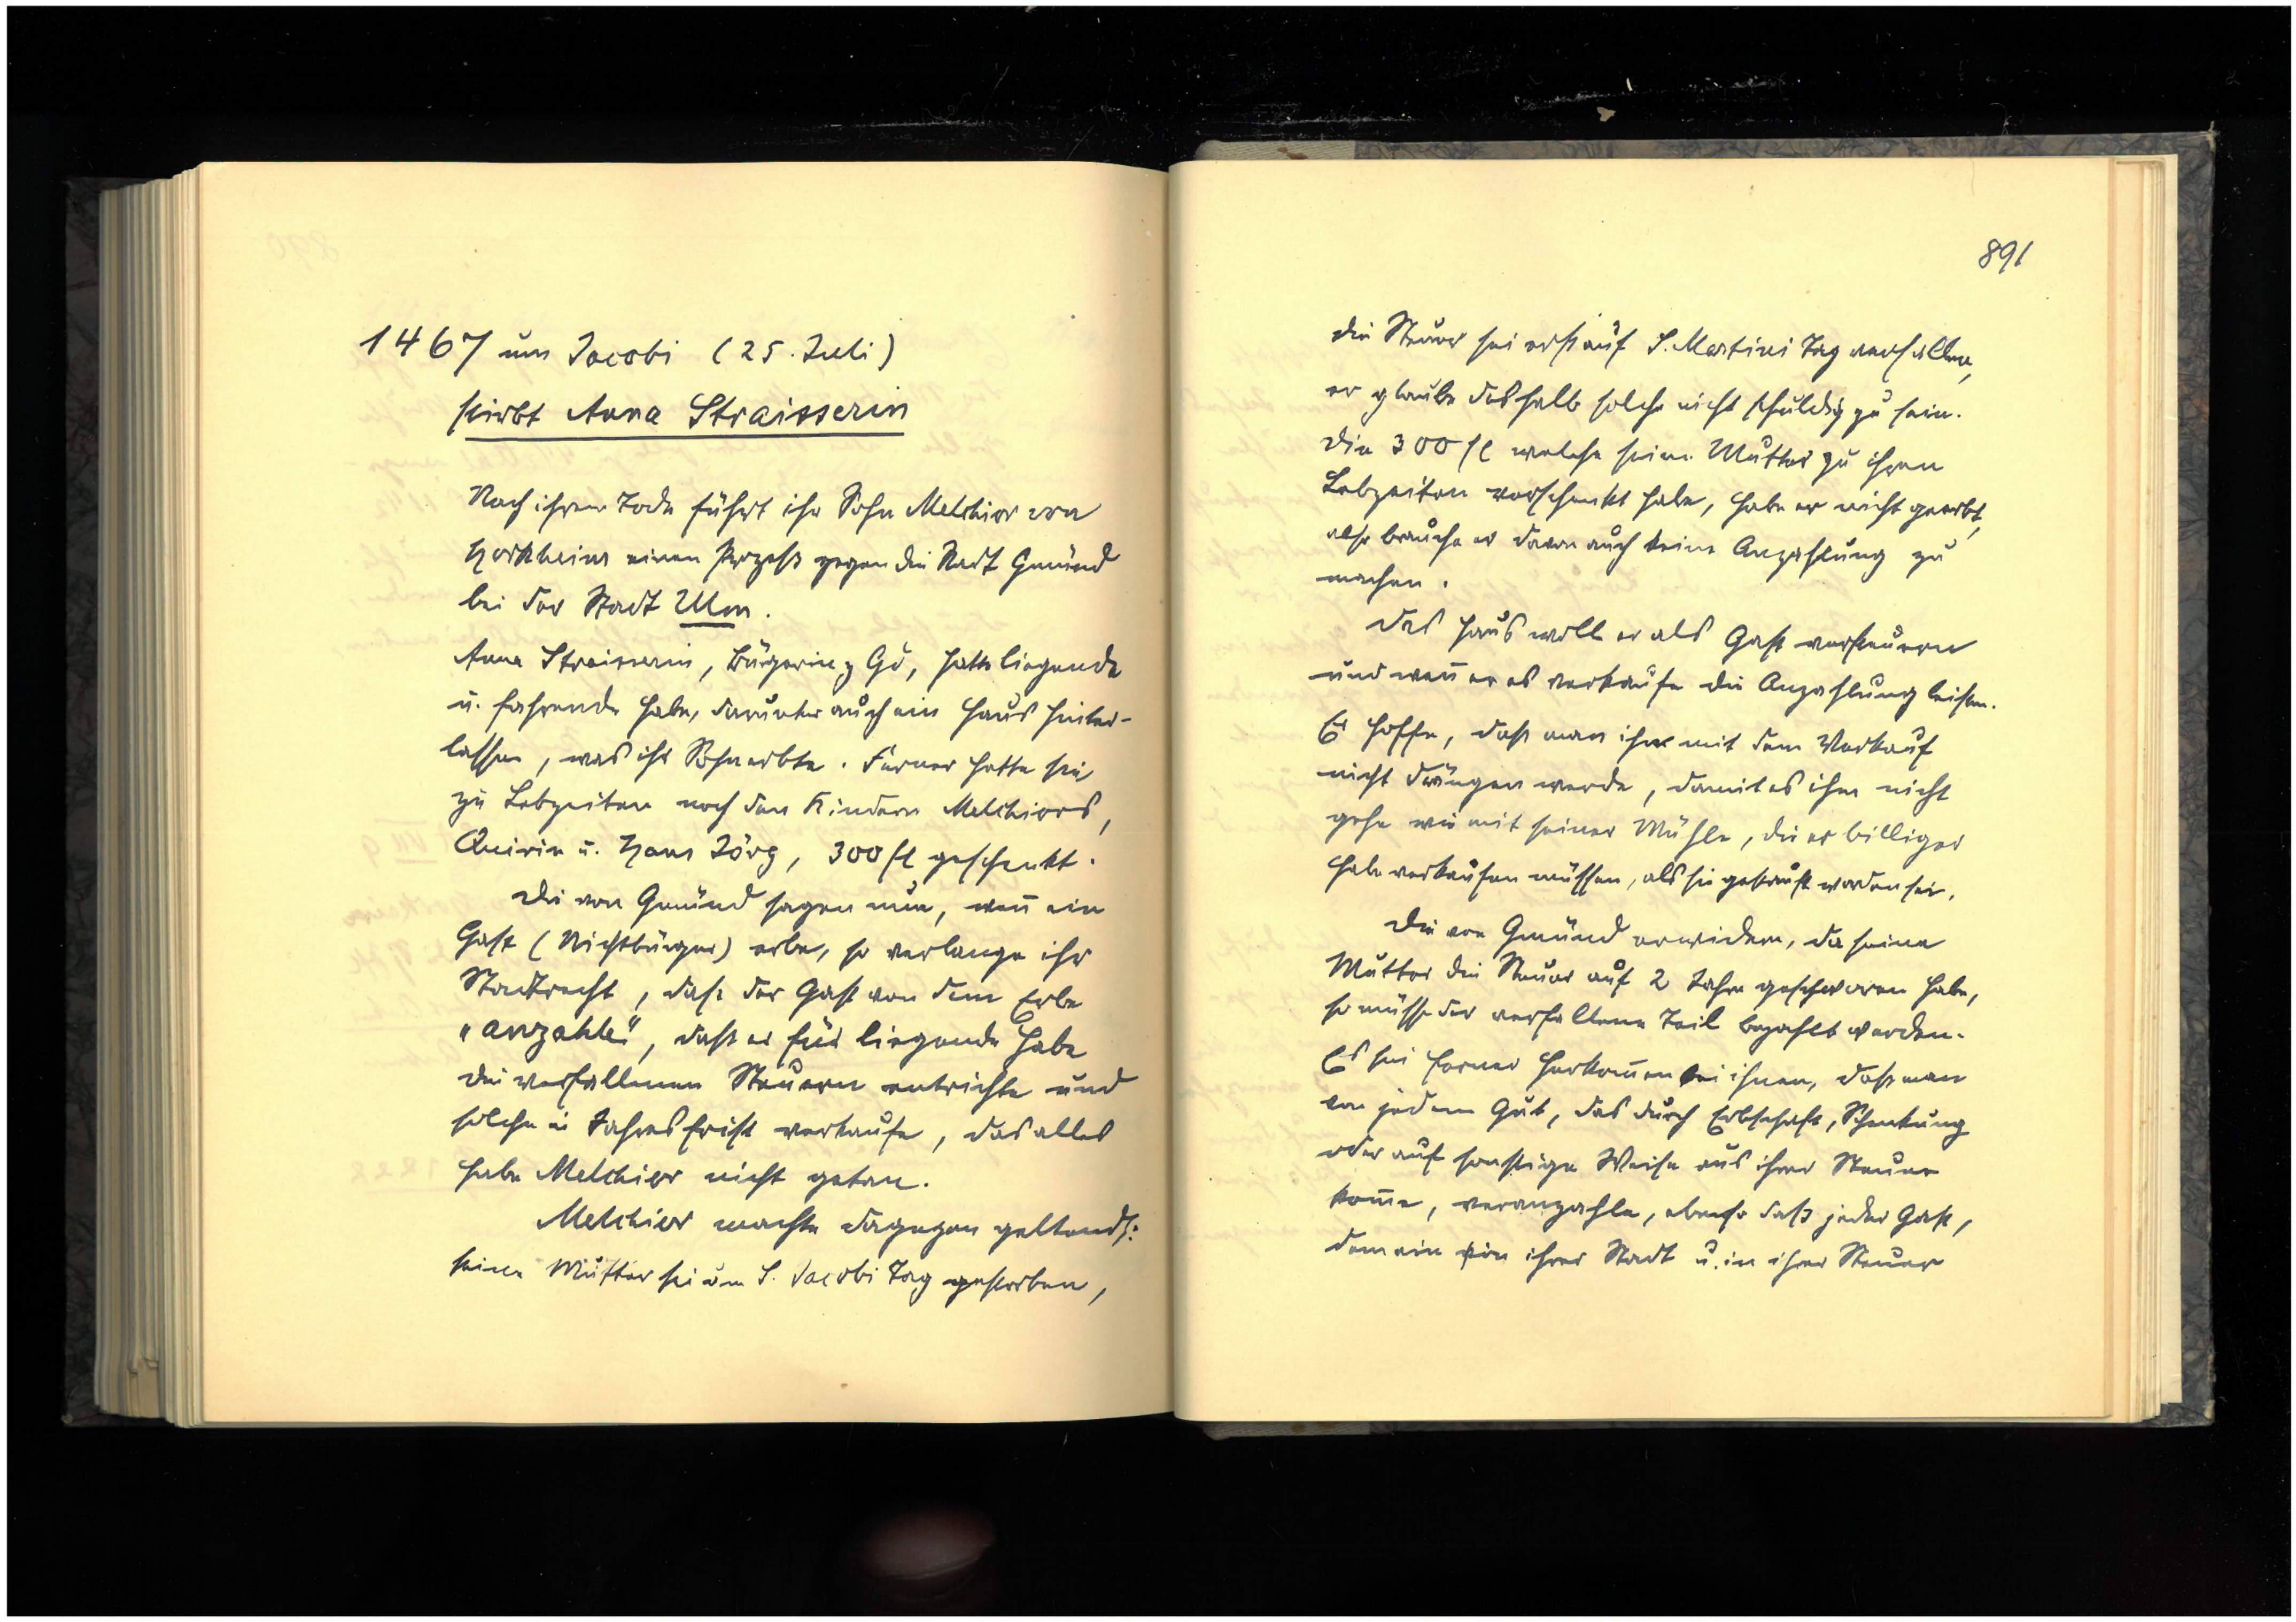 1467 um Jacobi (25. Juli)
stirbt Anna Straisserin
Nach ihrem Tode führt ihr Sohn Melchior von
Horkheim einen Prozess gegen die Stadt Gmünd
bei der Stadt Ulm.
Anna Straisserin, Bürgerin z Gd, hatte liegende
u. fahrende Habe, darunter auch ein Haus hinter-
lassen, was ihr Sohn erbte. Ferner hatte sie
zu Lebzeiten noch den Kindern Melchiors,
Quirin u. Hans Jörg, 300 fl geschenkt.
Die von Gmünd sagen nun, wen̄ ein
Gast (Nichtbürger) erbe, so verlange ihr
Stadtrecht, dass der Gast von dem Erbe
"anzahle", dass er für liegende Habe
die verfallenen Steuern entrichte und
solche in Jahresfrist verkaufe, das alles
habe Melchior nicht getan.
Melchior machte dagegen geltend:
seine Mutter sei um S. Jacobi Tag gestorben,
891
die Steuer sei erst auf S. Martini Tag verfallen,
er glaube deshalb solche nicht schuldig zu sein.
Die 300 fl welche seine Mutter zu ihren
Lebzeiten verschenkt habe, habe er nicht geerbt,
also brauche er davon auch keine Anzahlung zu
machen.
Das Haus woll er als Gast versteuern
und wen̄ er es verkaufe die Anzahlung leisten.
Er hoffe, dass man ihn mit dem Verkauf
nicht drängen werde, damit es ihm nicht
gehe wie mit seiner Mühle, die er billiger
habe verkaufen müssen, als sie gekauft worden sei.
Die von Gmünd erwidern, da seine
Mutter die Steuer auf 2 Jahre geschworen habe,
so müsse der verfallene Teil bezahlt werden.
Es sei ferner Herkom̄en bei ihnen, dass man
von jedem Gut, das durch Erbschaft, Schenkung
oder auf sonstige Weise aus ihrer Steuer
kom̄e, veranzahle, ebenso dass jeder Gast,
dem ein in ihrer Stadt u. in ihrer Steuer